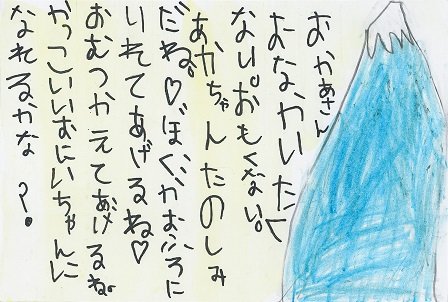 おかあさん
おなかいたく
ない。おもくない。
あかちゃんたのしみ
だね。♡ぼくがおふろに
いれてあげるね♡
おむつかえてあげるね。
かっこいいおにいちゃんに
なれるかな?!